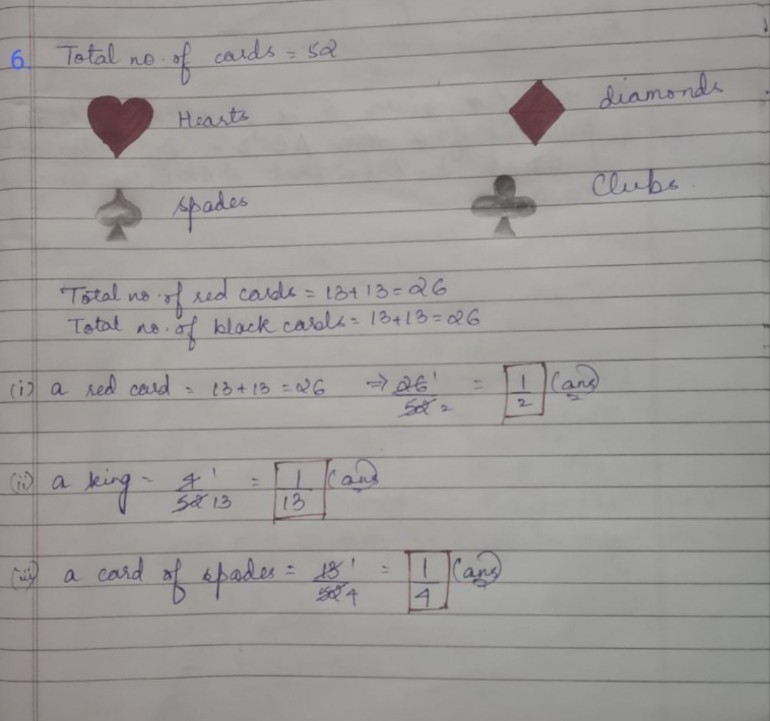 6. Total no. of cards = 52
Hearts diamonds
spades Clubs
Total no. of red cards = 13+13 = 26
Total no. of black cards = 13+13 = 26
(i) a red card = 13+13 = 26 ⇒ 26/52 1 2 = 1/2 (ans)
(ii) a king - 4/52 1 13 = 1/13 (ans)
(iii) a card of spades = 13/52 1 4 = 1/4 (ans)